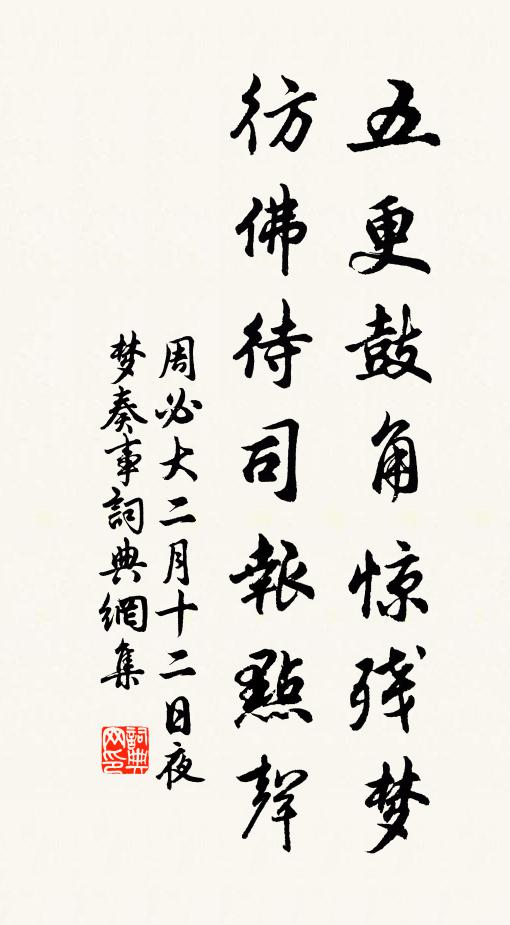 五更鼓角惊残梦
彷佛待司報點聲
周必大二月十二日夜
梦奏事詞典網集
詞典网印